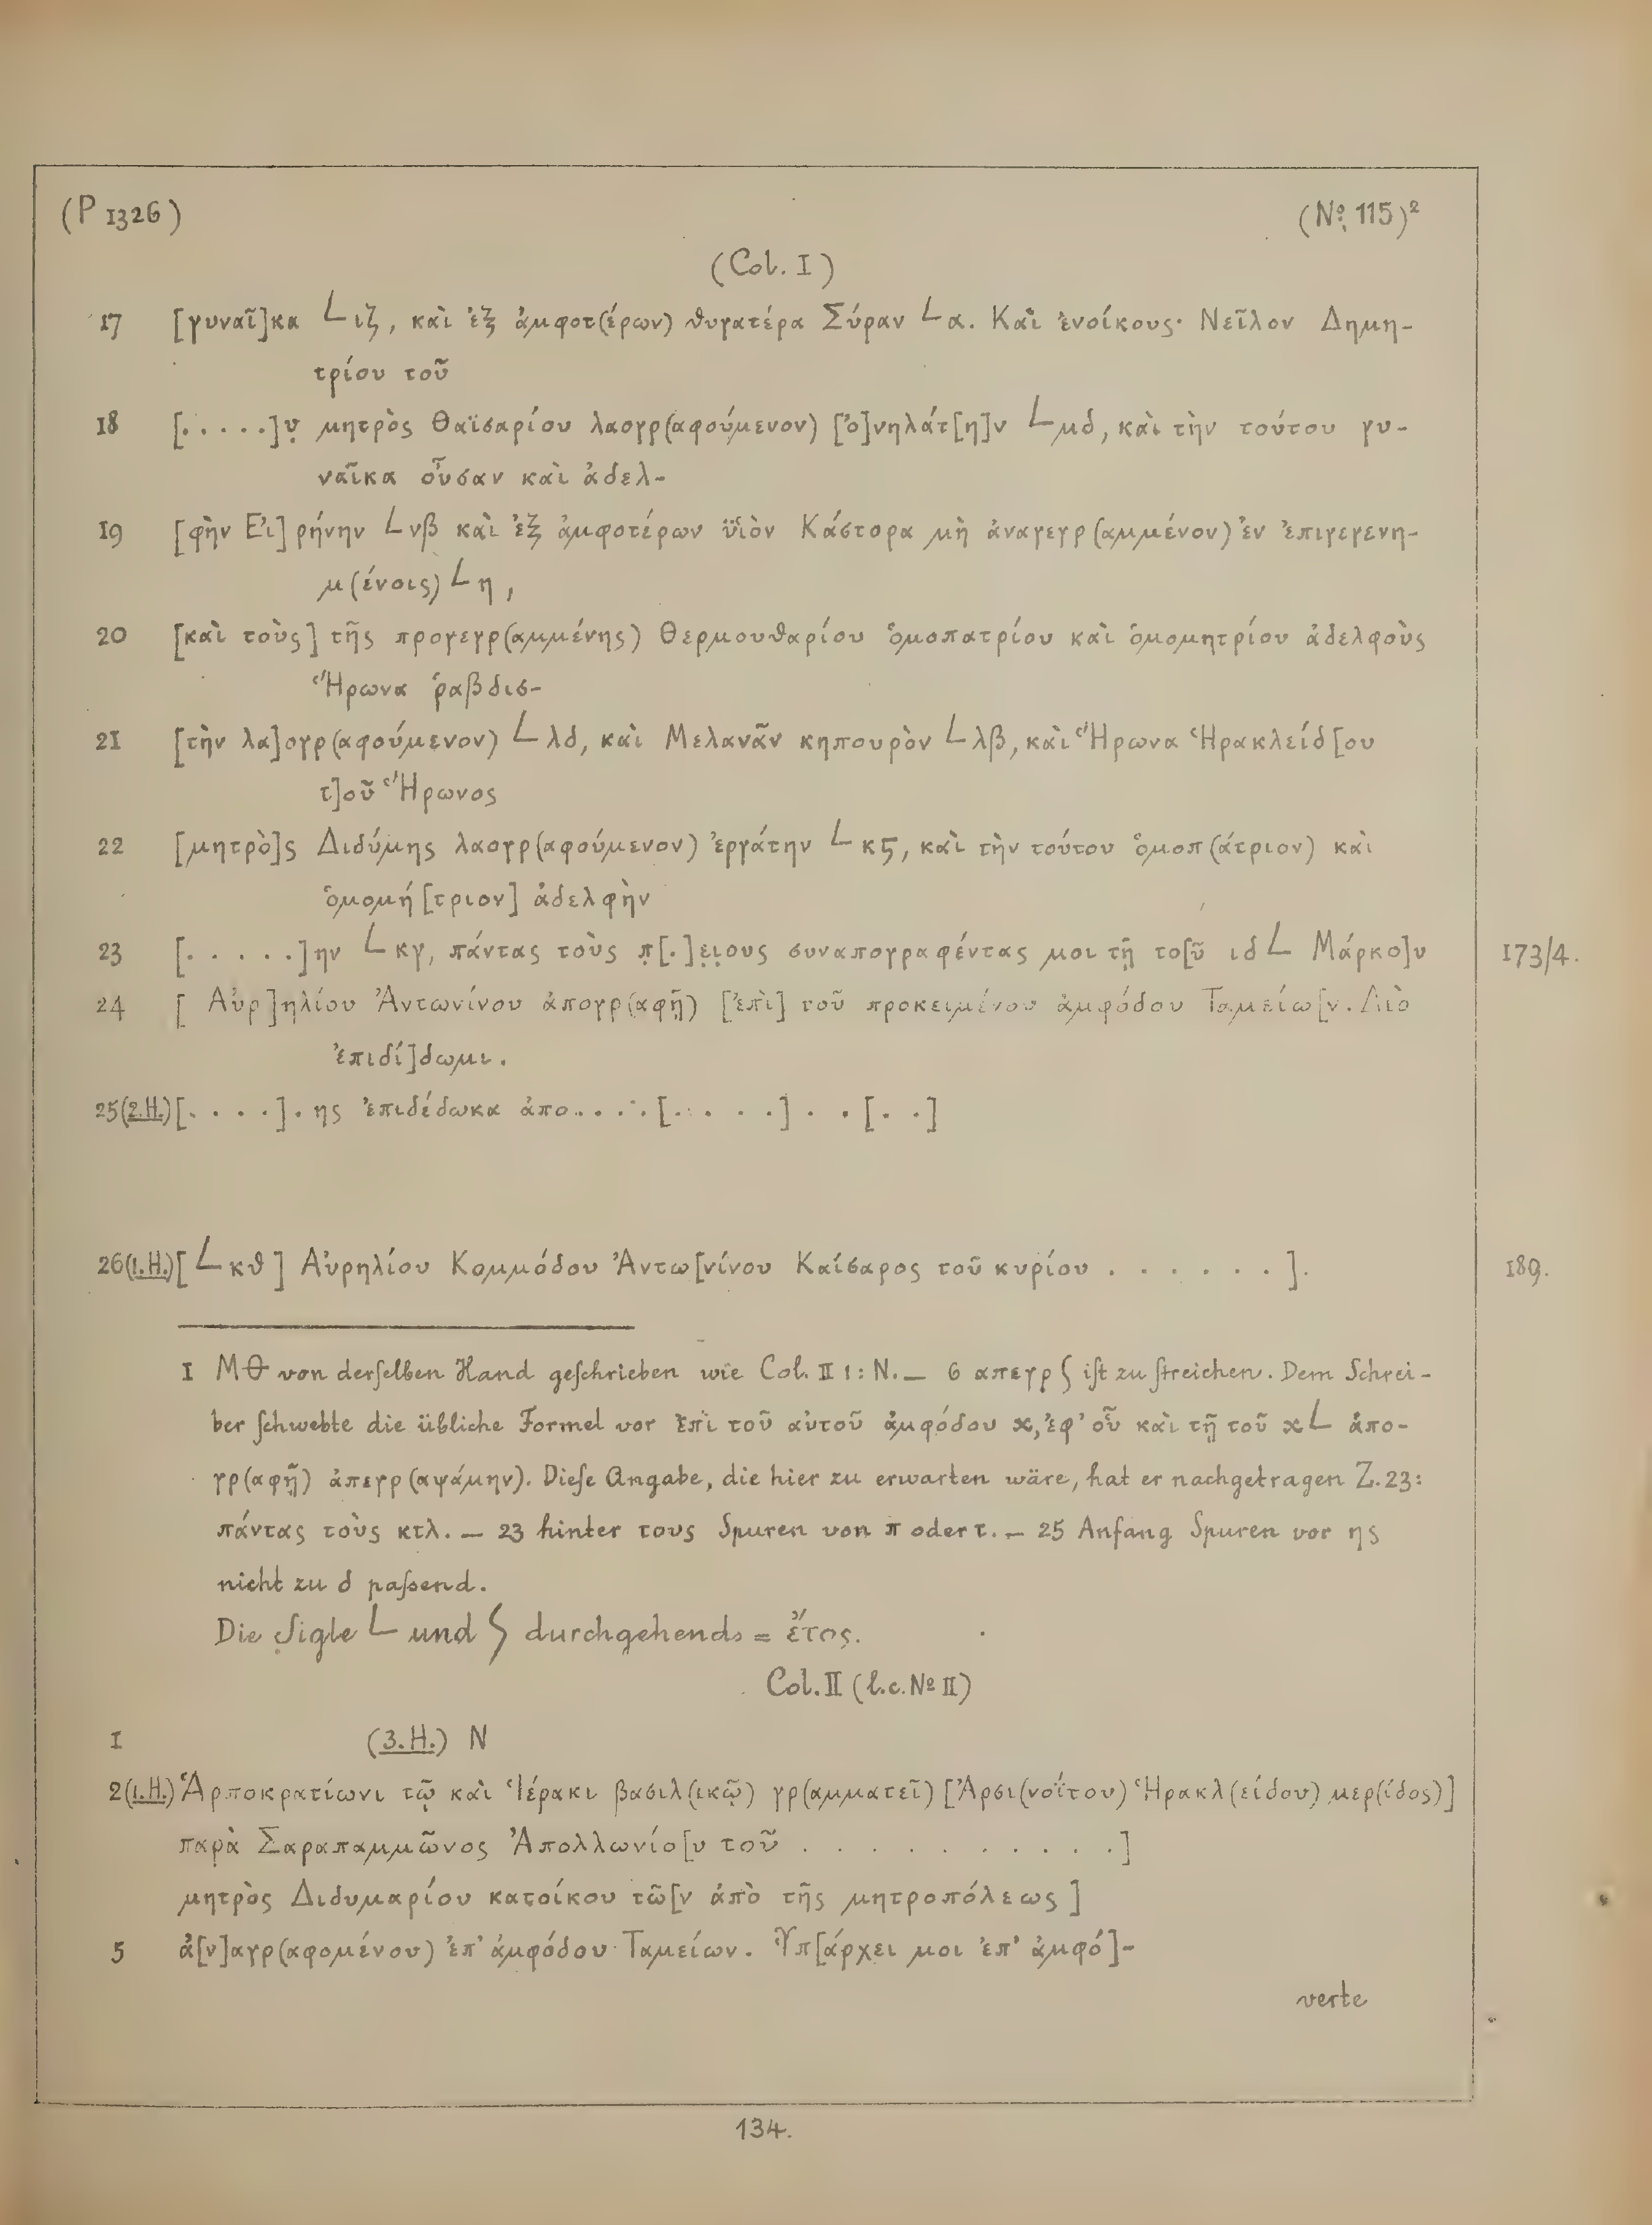 (P 1326) (No. 115)²
(Col. I)
17 [γυναῖ]κα L ιζ, καὶ ἐξ ἀμφοτ(έρων) θυγατέρα Σύραν L α. Καὶ ἐνοίκους· Νεῖλον Δημη-
τρίου τοῦ
18 [.....]υ̣ μητρὸς Θαϊσαρίου λαογρ(αφούμενον) [ὀ]νηλάτ[η]ν L μδ, καὶ τὴν τούτου γυ-
ναῖκα οὖσαν καὶ ἀδελ-
19 [φὴν Εἰ]ρήνην L νβ καὶ ἐξ ἀμφοτέρων ϋἱὸν Κάστορα μὴ ἀναγεγρ(αμμένον) ἐν ἐπιγεγενη-
μ(ένοις) L η,
20 [καὶ τοὺς] τῆς προγεγρ(αμμένης) Θερμουθαρίου ὁμοπατρίου καὶ ὁμομητρίου ἀδελφοὺς
Ἥρωνα ῥαβδισ-
21 [τὴν λα]ογρ(αφούμενον) L λδ, καὶ Μελανᾶν κηπουρὸν L λβ, καὶ Ἥρωνα Ἡρακλείδ[ου
τ]οῦ Ἥρωνος
22 [μητρὸ]ς Διδύμης λαογρ(αφούμενον) ἐργάτην L κϛ, καὶ τὴν τούτου ὁμοπ(άτριον) καὶ
ὁμομή[τριον] ἀδελφὴν
23 [.....]ην L κγ, πάντας τοὺς π̣[.]ε̣ι̣ους συναπογραφέντας μοι τῇ το[ῦ ιδ L Μάρκο]υ 173/4.
24 [Αὐρ]ηλίου Ἀντωνίνου ἀπογρ(αφῇ) [ἐπὶ] τοῦ προκειμένου ἀμφόδου Ταμείω[ν. Διὸ
ἐπιδί]δωμι.
25 (2.H.) [....].ης ἐπιδέδωκα ἀπο.....[.....]..[..]
26 (1.H.) [L κθ] Αὐρηλίου Κομμόδου Ἀντω[νίνου Καίσαρος τοῦ κυρίου ......]. 189.
1 ΜΘ von derſelben Hand geſchrieben wie Col. II 1: N. — 6 απεγρ ϛ iſt zu ſtreichen. Dem Schrei-
ber ſchwebte die übliche Formel vor ἐπὶ τοῦ αὐτοῦ ἀμφόδου x, ἐφ' οὗ καὶ τῇ τοῦ x L ἀπο-
γρ(αφῇ) ἀπεγρ(αψάμην). Dieſe Angabe, die hier zu erwarten wäre, hat er nachgetragen Z. 23:
πάντας τοὺς κτλ. — 23 hinter τους Spuren von π oder τ. — 25 Anfang Spuren vor ης
nicht zu δ paſsend.
Die Sigle L und ϛ durchgehends = ἔτος.
Col. II (l.c. No II)
1 (3.H.) N
2 (1.H.) Ἁρποκρατίωνι τῷ καὶ Ἱέρακι βασιλ(ικῷ) γρ(αμματεῖ) [Ἀρσι(νοΐτου) Ἡρακλ(είδου) μερ(ίδος)]
παρὰ Σαραπαμμῶνος Ἀπολλωνίο[υ τοῦ ..........]
μητρὸς Διδυμαρίου κατοίκου τῶ[ν ἀπὸ τῆς μητροπόλεως]
5 ἀ[ν]αγρ(αφομένου) ἐπ' ἀμφόδου Ταμείων. Ὑπ[άρχει μοι ἐπ' ἀμφό]-
verte
134.